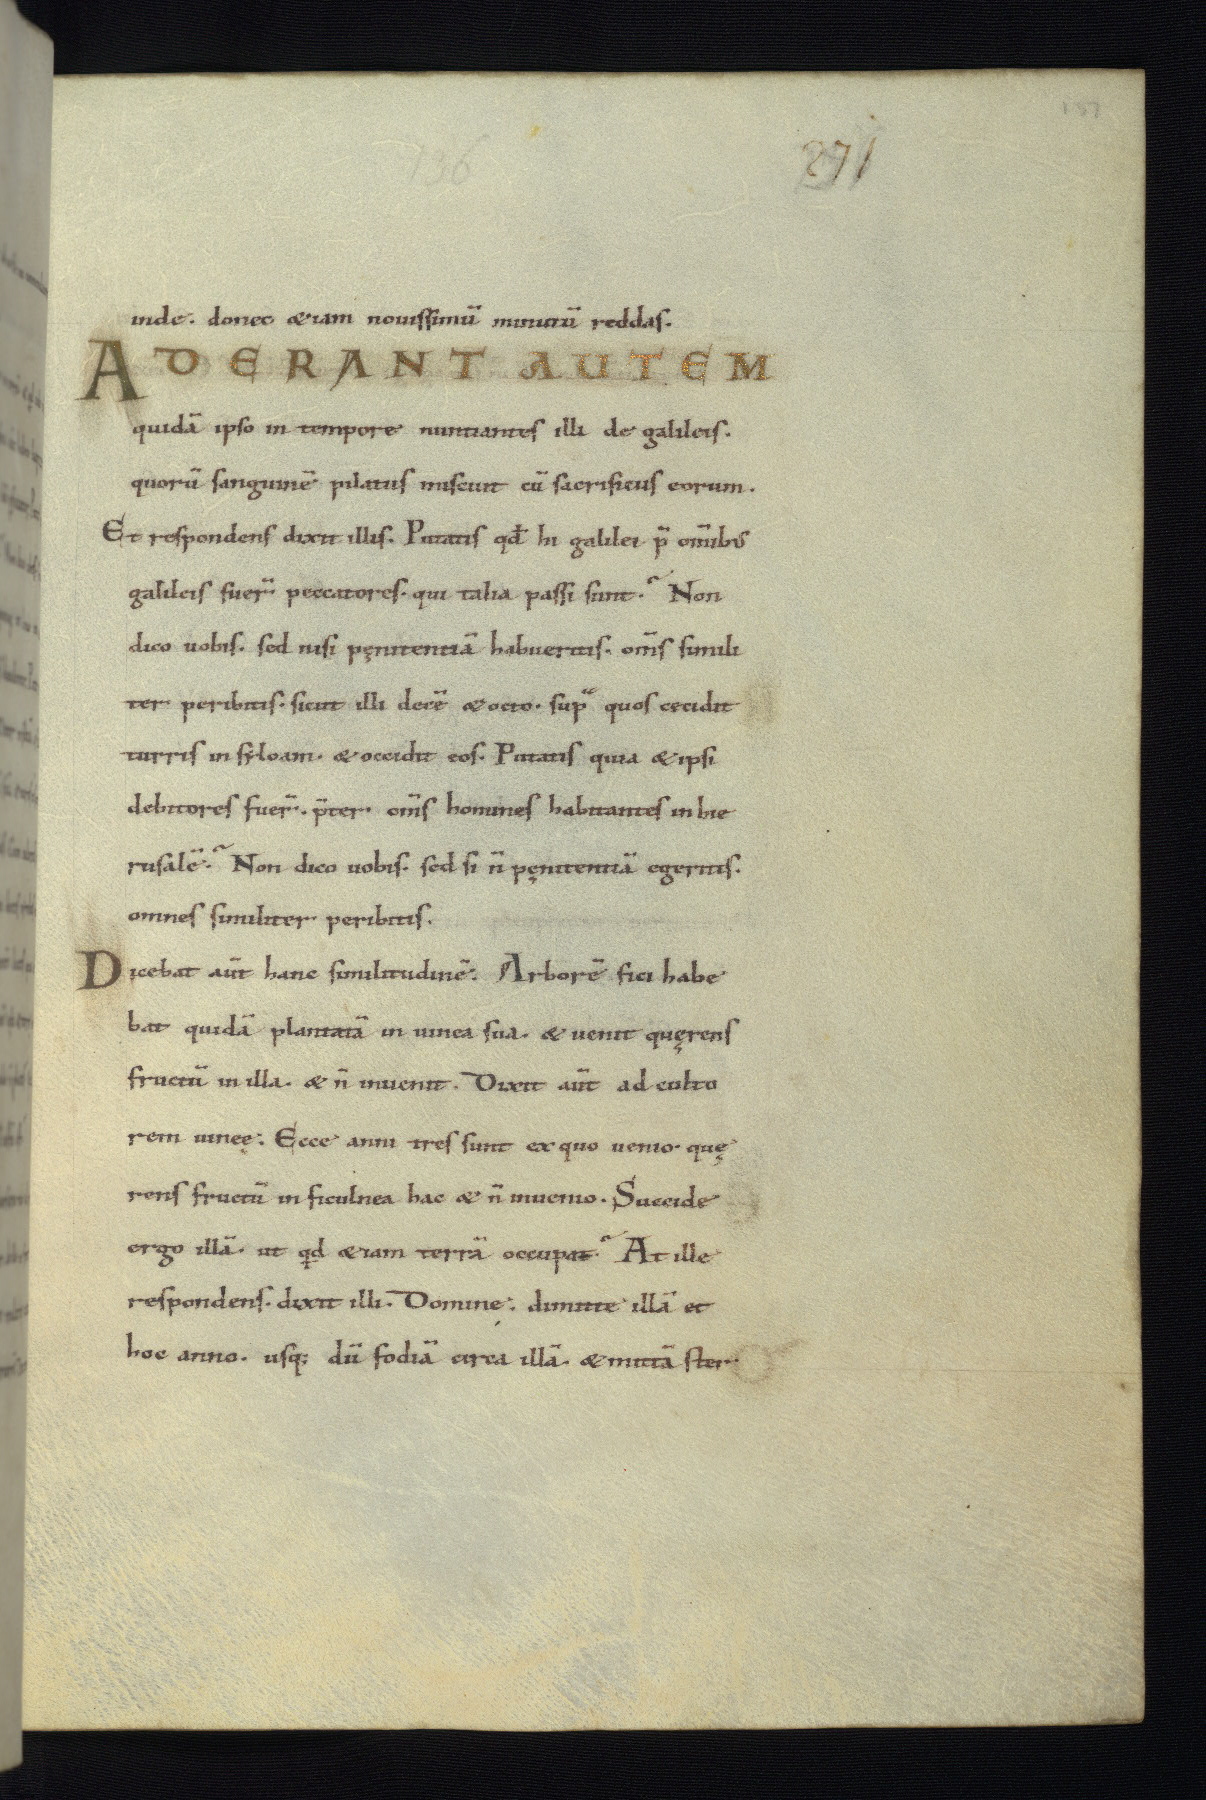 137
136
271
inde. donec &iam nouissimū minutū reddas.
ADERANT AUTEM
quidā ipso in tempore nuntiantes illi de galileis.
quorū sanguinē pilatus miscuit cū sacrificiis eorum.
Et respondens dixit illis. Putatis qđ hi galilei p̄ om̄ibus
galileis fuer̄ peccatores. qui talia passi sunt? Non
dico uobis. sed nisi pęnitentiā habueritis. om̄s simili
ter peribitis. sicut illi decē & octo. sup̄ quos cecidit
turris in syloam. & occidit eos. Putatis quia & ipsi
debitores fuer̄. p̄ter om̄s homines habitantes in hie
rusalē? Non dico uobis. sed si n̄ pęnitentiā egeritis.
omnes similiter peribitis.
Dicebat aūt hanc similitudinē. Arborē fici habe
bat quidā plantatā in uinea sua. & uenit quęrens
fructū in illa. & n̄ inuenit. Dixit aūt ad culto
rem uineę. Ecce anni tres sunt ex quo uenio quę
rens fructū in ficulnea hac & n̄ inuenio. Succide
ergo illā. ut qd &iam terrā occupat? At ille
respondens. dixit illi. Domine. dimitte illā et
hoc anno. usq; dū fodiā circa illā. & mittā ster